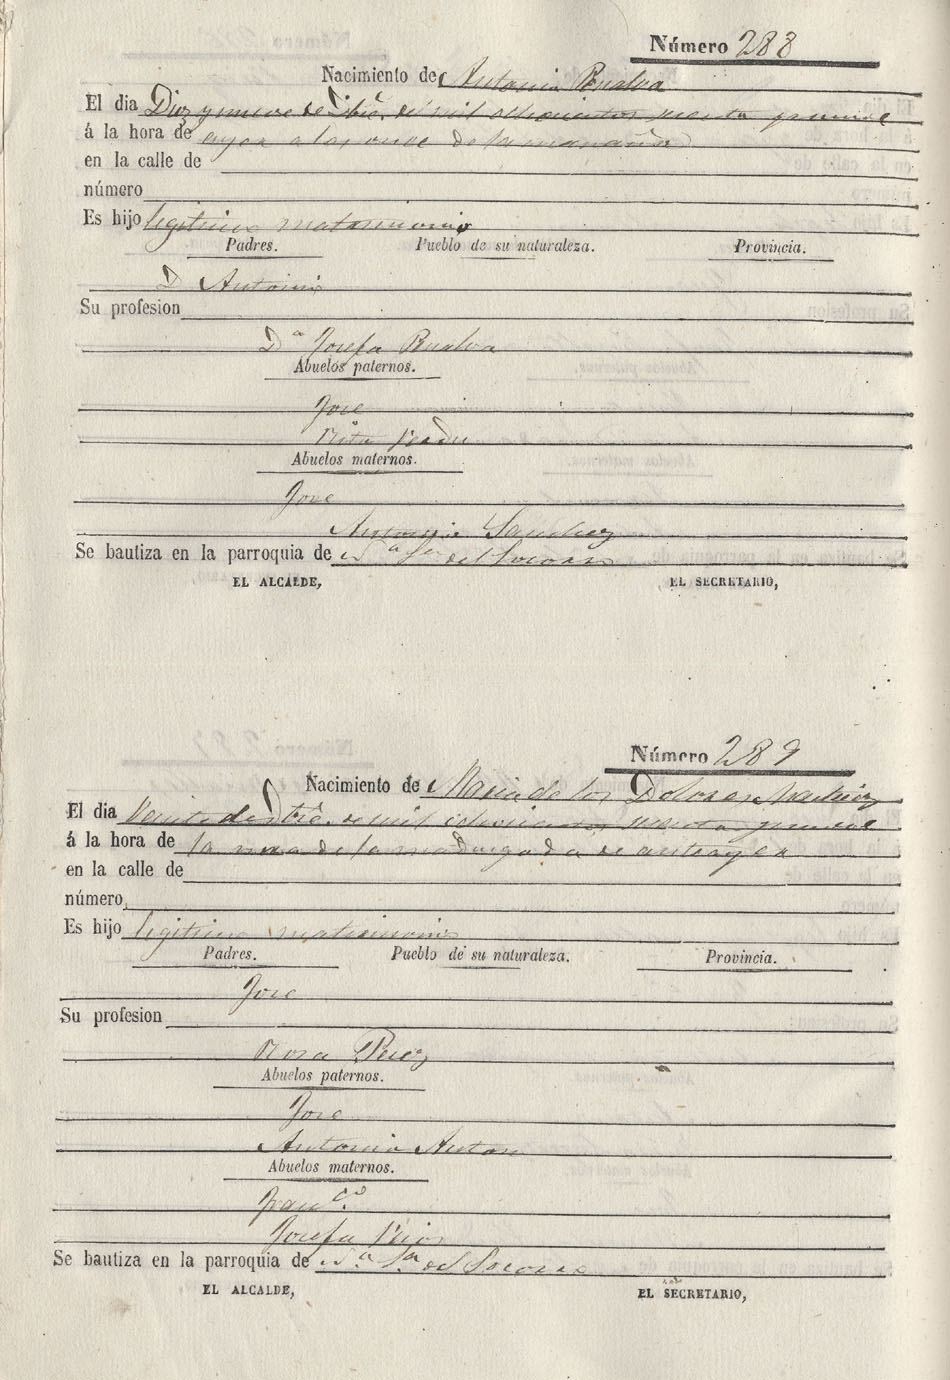 Número 288
Nacimiento de Antonia Rualva
El dia Diez y nueve de Dbre. de mil ochocientos sesenta y nueve
á la hora de ayer a las once de la mañana
en la calle de
número
Es hijo legitimo matrimonio
Padres. Pueblo de su naturaleza. Provincia.
D Antonio
Su profesion
Dª Josefa Rualva
Abuelos paternos.
Jose
Rita Verdu
Abuelos maternos.
Jose
Antonia Sanchez
Se bautiza en la parroquia de Nª Sª del Socorro
EL ALCALDE, EL SECRETARIO,
Número 289
Nacimiento de Maria de los Dolores Martinez
El dia Veinte de Dbre. de mil ochocientos sesenta y nueve
á la hora de la una de la madrugada de antes ayer
en la calle de
número
Es hijo legitimo matrimonio
Padres. Pueblo de su naturaleza. Provincia.
Jose
Su profesion
Rosa Perez
Abuelos paternos.
Jose
Antonia Anton
Abuelos maternos.
Franco.
Josefa Rios
Se bautiza en la parroquia de Nª Sª del Socorro
EL ALCALDE, EL SECRETARIO,